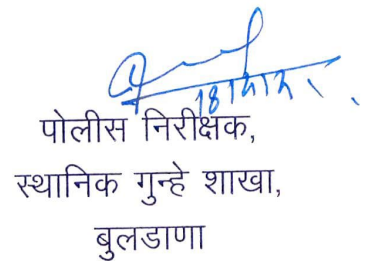 पोलीस निरीक्षक,
स्थानिक गुन्हे शाखा,
बुलडाणा